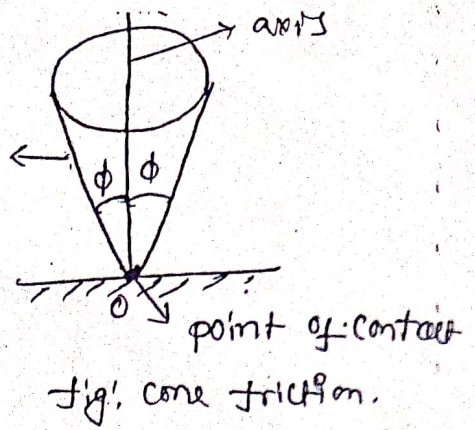 axis
ϕ ϕ
O
point of contact
fig. cone friction.